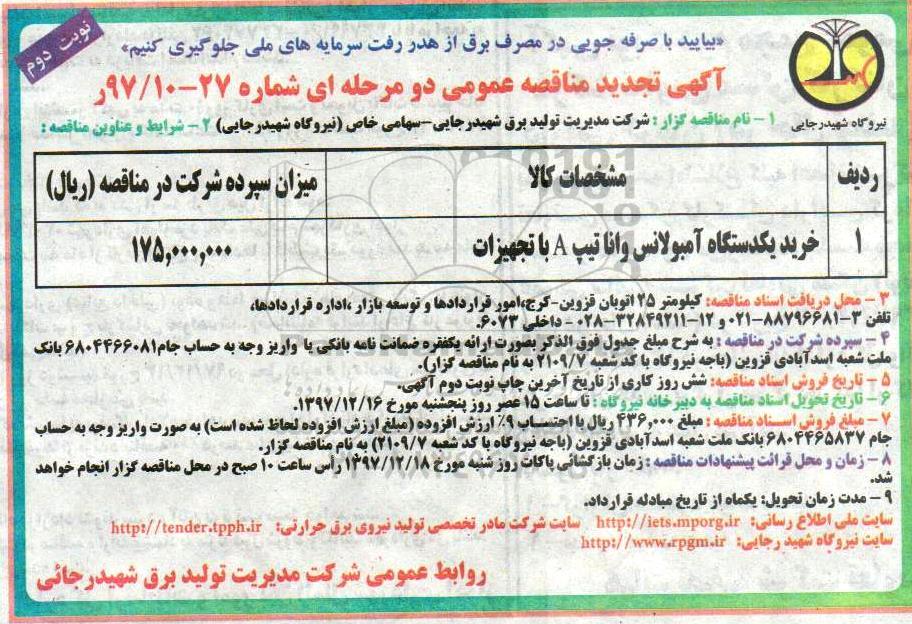 نوبت دوم
«بیایید با صرفه جویی در مصرف برق از هدر رفت سرمایه های ملی جلوگیری کنیم»
آگهی تجدید مناقصه عمومی دو مرحله ای شماره ۲۷-۹۷/۱۰ر
نیروگاه شهیدرجایی
۱ - نام مناقصه گزار : شرکت مدیریت تولید برق شهیدرجایی-سهامی خاص (نیروگاه شهیدرجایی) ۲ - شرایط و عناوین مناقصه :
ردیف مشخصات کالا میزان سپرده شرکت در مناقصه (ریال)
۱ خرید یکدستگاه آمبولانس وانا تیپ A با تجهیزات ۱۷۵,۰۰۰,۰۰۰
۳ - محل دریافت اسناد مناقصه: کیلومتر ۲۵ اتوبان قزوین-کرج،امور قراردادها و توسعه بازار ،اداره قراردادها،
تلفن ۳-۰۲۱-۸۸۷۹۶۶۸۱ و ۱۲-۰۲۸-۳۲۸۴۹۲۱۱ - داخلی ۶۰۷۳.
۴ - سپرده شرکت در مناقصه : به شرح مبلغ جدول فوق الذکر بصورت ارائه یکفقره ضمانت نامه بانکی یا واریز وجه به حساب جام۶۸۰۴۴۶۶۰۸۱ بانک
ملت شعبه اسدآبادی قزوین (باجه نیروگاه با کد شعبه ۲۱۰۹/۷ به نام مناقصه گزار).
۵ - تاریخ فروش اسناد مناقصه: شش روز کاری از تاریخ آخرین چاپ نوبت دوم آگهی.
۶ - تاریخ تحویل اسناد مناقصه به دبیرخانه نیروگاه : تا ساعت ۱۵ عصر روز پنجشنبه مورخ ۱۳۹۷/۱۲/۱۶.
۷ - مبلغ فروش اسناد مناقصه : مبلغ ۴۳۶,۰۰۰ ریال با احتساب ۹٪ ارزش افزوده (مبلغ ارزش افزوده لحاظ شده است) به صورت واریز وجه به حساب
جام ۶۸۰۴۴۶۵۸۳۷ بانک ملت شعبه اسدآبادی قزوین (باجه نیروگاه با کد شعبه ۲۱۰۹/۷) به نام مناقصه گزار.
۸ - زمان و محل قرائت پیشنهادات مناقصه : زمان بازگشائی پاکات روز شنبه مورخ ۱۳۹۷/۱۲/۱۸ رأس ساعت ۱۰ صبح در محل مناقصه گزار انجام خواهد
شد.
۹ - مدت زمان تحویل: یکماه از تاریخ مبادله قرارداد.
سایت ملی اطلاع رسانی: http://iets.mporg.ir سایت شرکت مادر تخصصی تولید نیروی برق حرارتی: http://tender.tpph.ir
سایت نیروگاه شهید رجایی: http://www.rpgm.ir
روابط عمومی شرکت مدیریت تولید برق شهیدرجائی